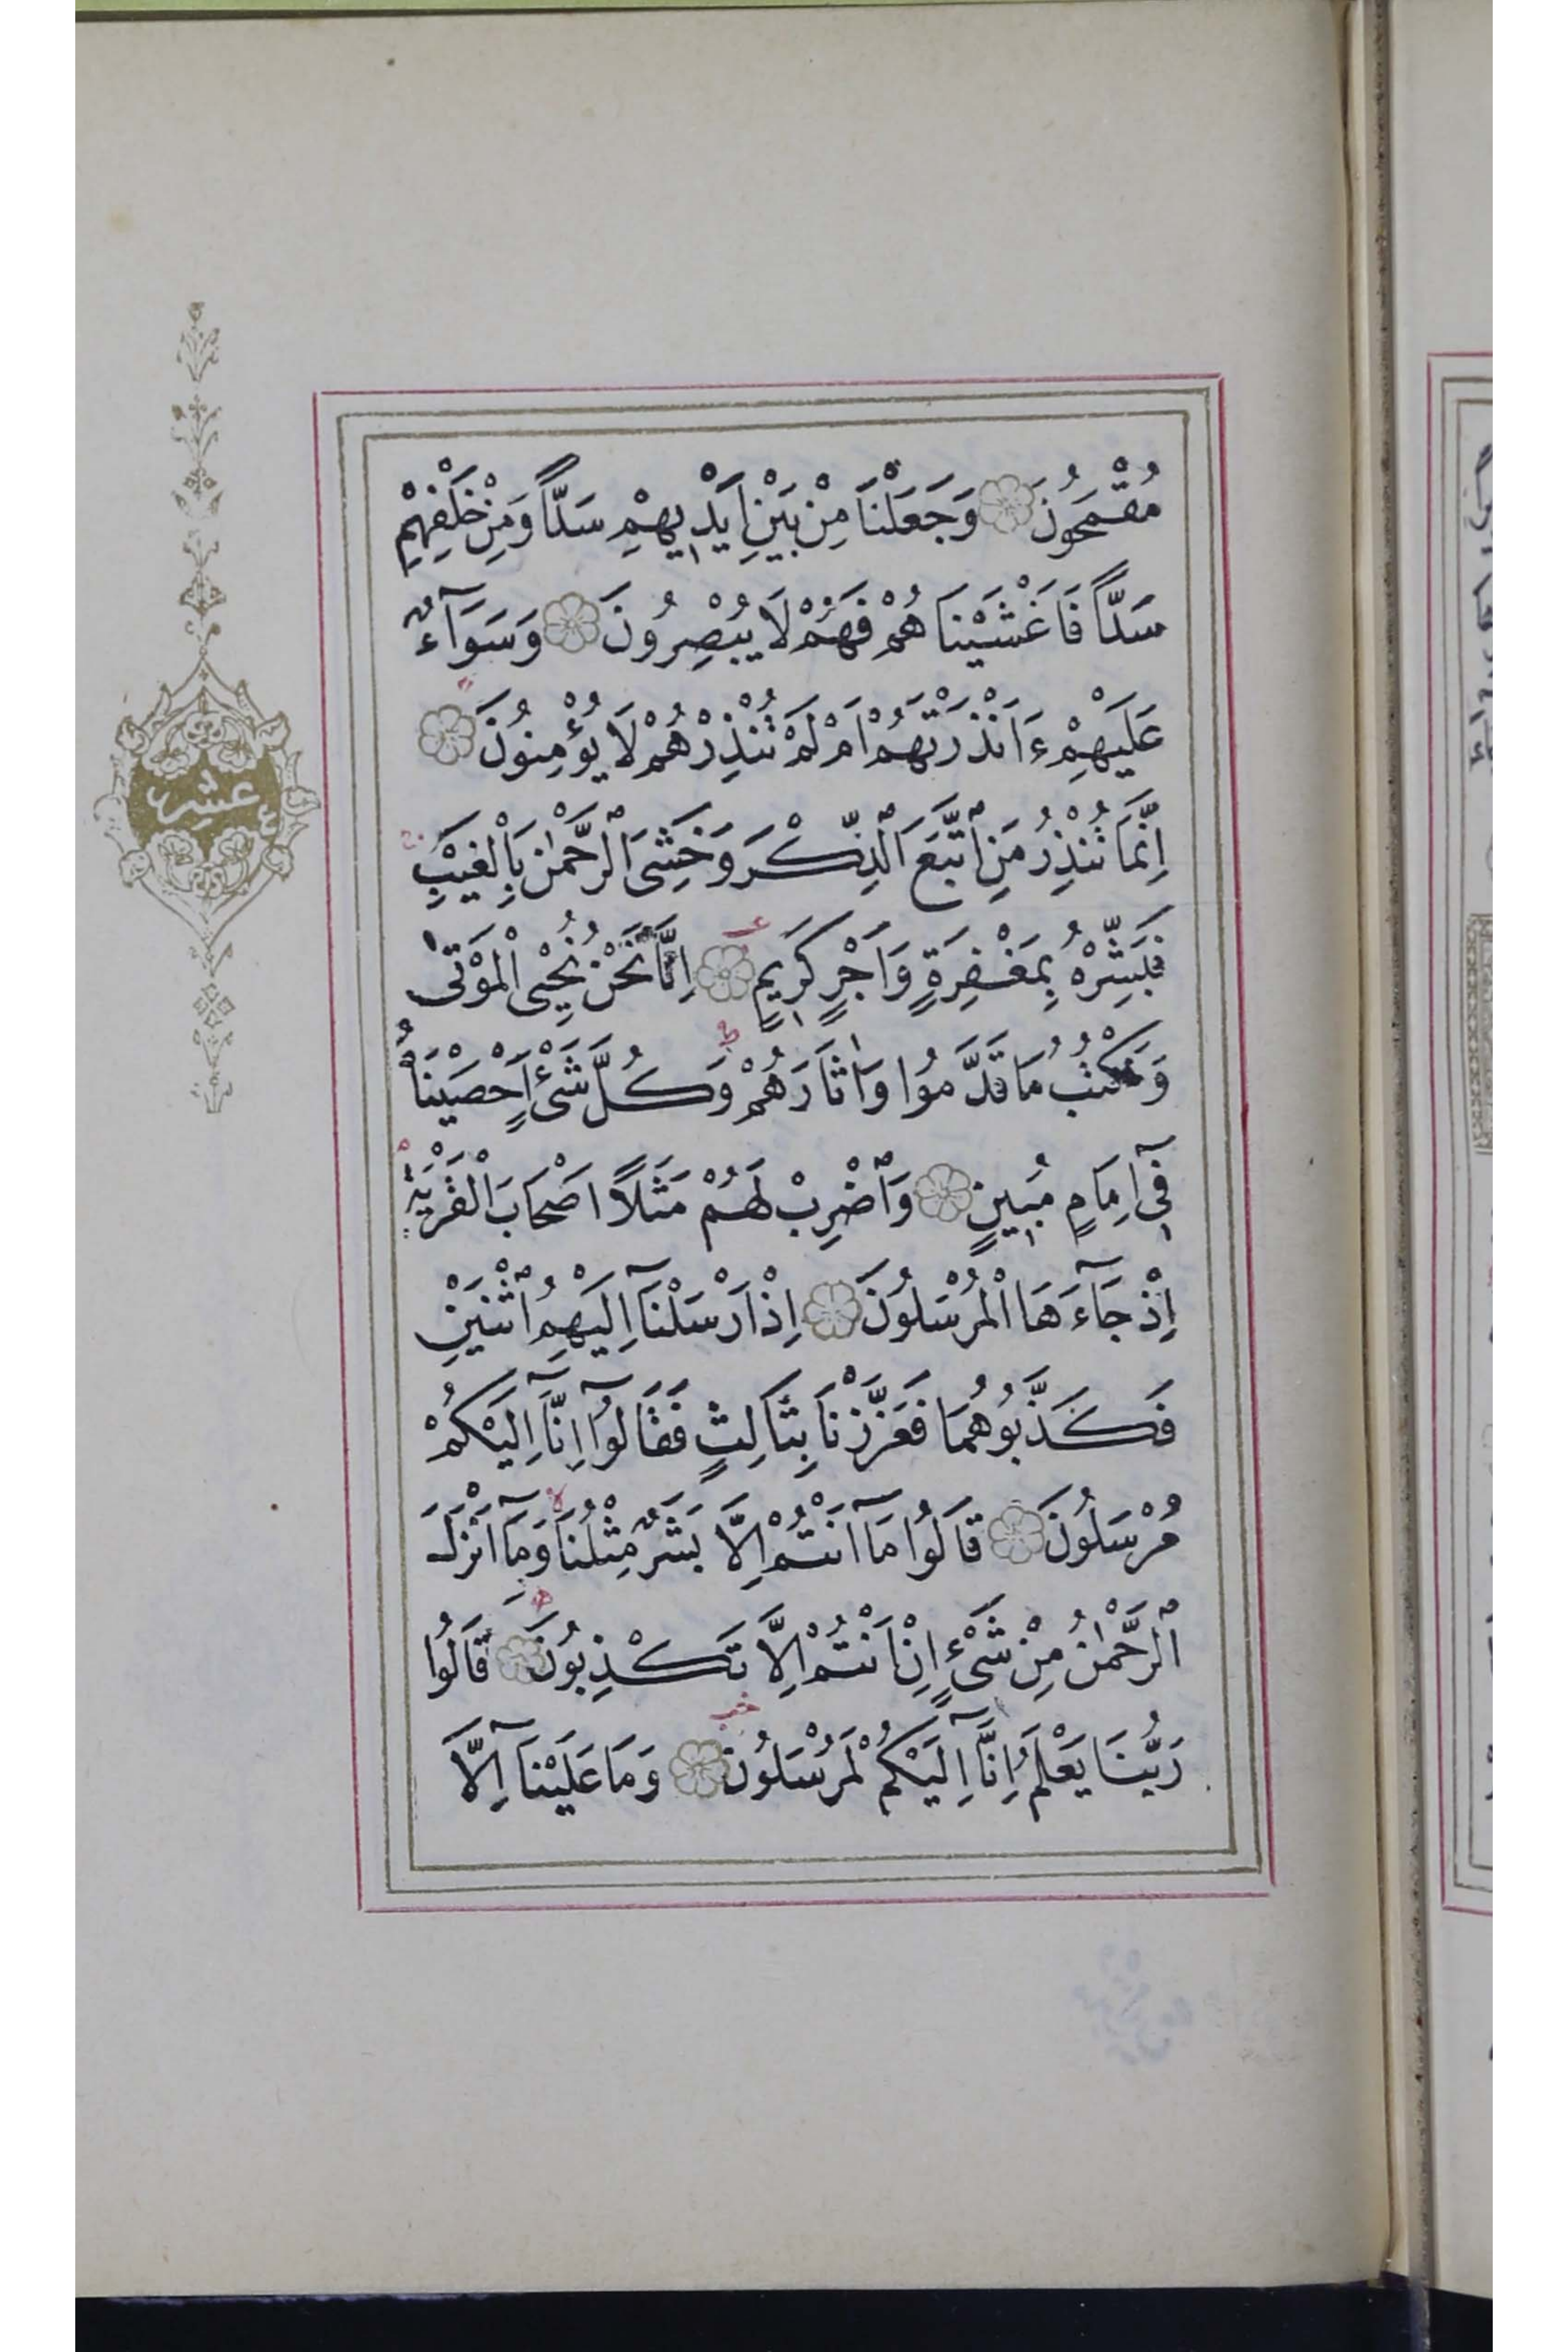 مُقْمَحُونَ وَجَعَلْنَا مِنْ بَيْنِ اَيْدِيهِمْ سَدًّا وَمِنْ خَلْفِهِمْ
سَدًّا فَاَغْشَيْنَاهُمْ فَهُمْ لَا يُبْصِرُونَ وَسَوَآءٌ
عَلَيْهِمْ ءَاَنْذَرْتَهُمْ اَمْ لَمْ تُنْذِرْهُمْ لَا يُؤْمِنُونَ
اِنَّمَا تُنْذِرُ مَنِ ٱتَّبَعَ ٱلذِّكْرَ وَخَشِىَ ٱلرَّحْمٰنَ بِالْغَيْبِ
فَبَشِّرْهُ بِمَغْفِرَةٍ وَاَجْرٍ كَرِيمٍ اِنَّا نَحْنُ نُحْيِى الْمَوْتٰى
وَنَكْتُبُ مَا قَدَّمُوا وَاٰثَارَهُمْ وَكُلَّ شَىْءٍ اَحْصَيْنَاهُ
فِىٓ اِمَامٍ مُبِينٍ وَٱضْرِبْ لَهُمْ مَثَلًا اَصْحَابَ الْقَرْيَةِ
اِذْ جَآءَهَا الْمُرْسَلُونَ اِذْ اَرْسَلْنَآ اِلَيْهِمُ ٱثْنَيْنِ
فَكَذَّبُوهُمَا فَعَزَّزْنَا بِثَالِثٍ فَقَالُوٓا اِنَّآ اِلَيْكُمْ
مُرْسَلُونَ قَالُوا مَآ اَنْتُمْ اِلَّا بَشَرٌ مِثْلُنَا وَمَآ اَنْزَلَ
ٱلرَّحْمٰنُ مِنْ شَىْءٍ اِنْ اَنْتُمْ اِلَّا تَكْذِبُونَ قَالُوا
رَبُّنَا يَعْلَمُ اِنَّآ اِلَيْكُمْ لَمُرْسَلُونَ وَمَا عَلَيْنَآ اِلَّا
عشر